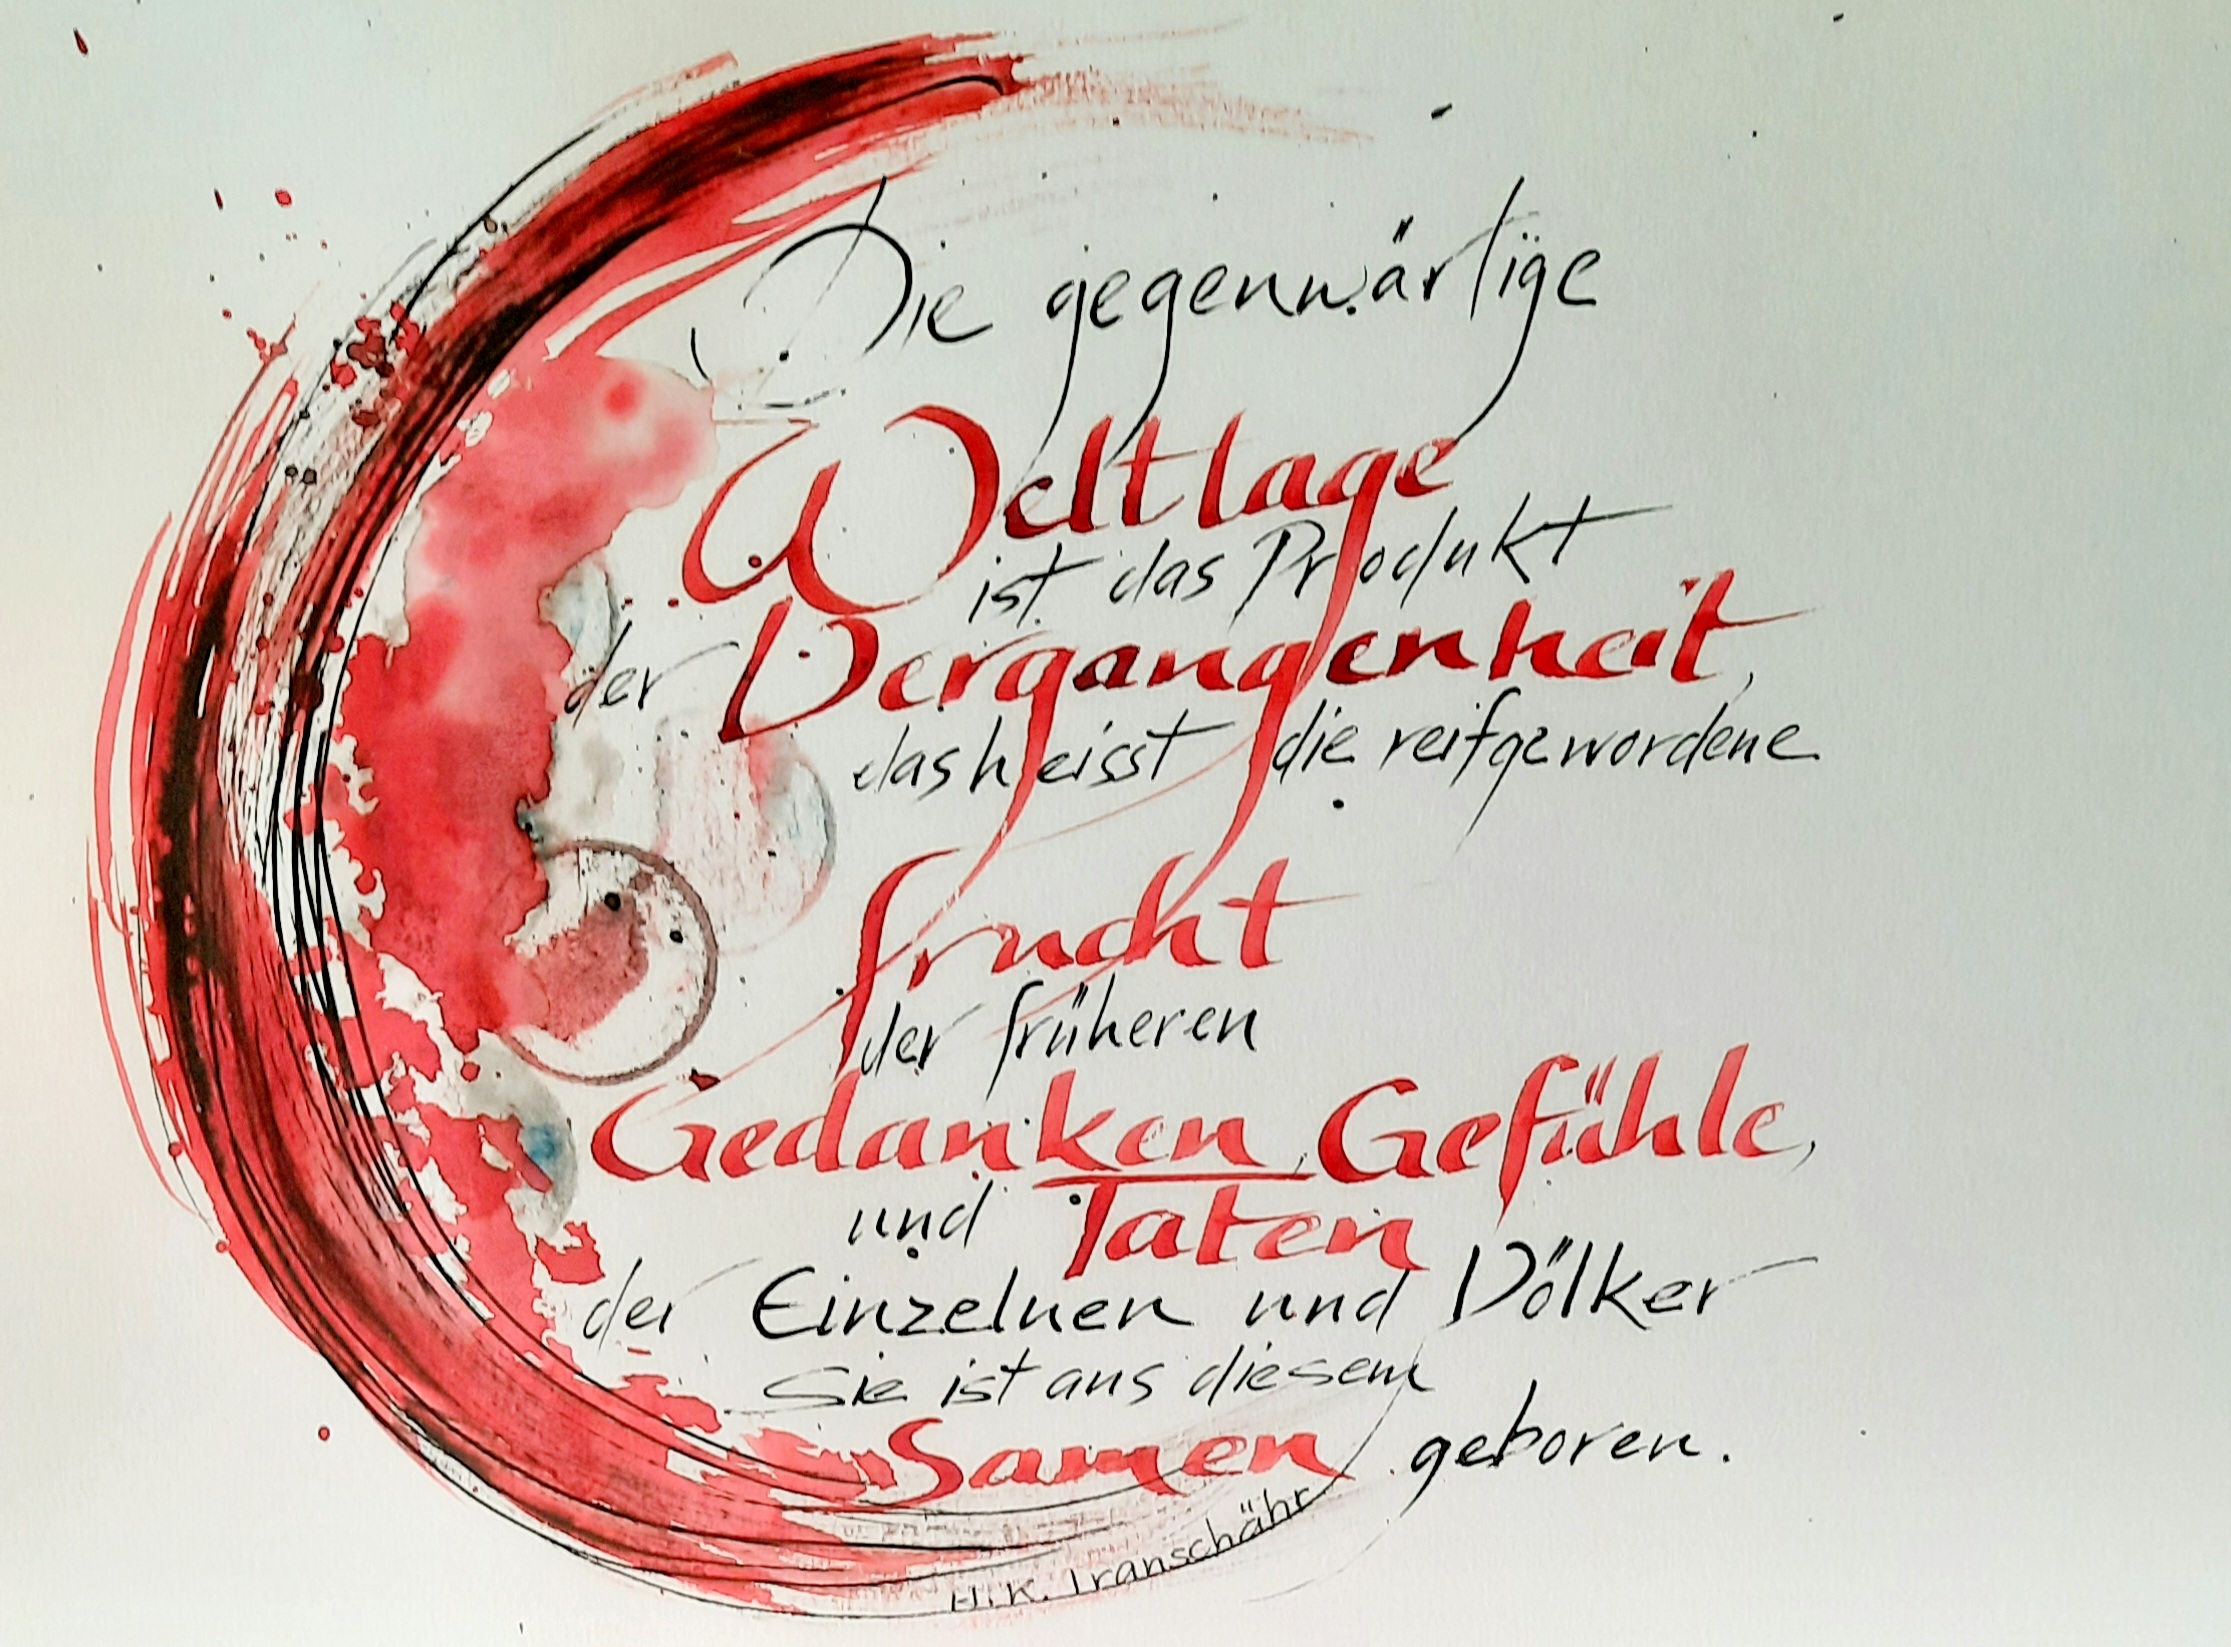 Die gegenwärtige
Weltlage
ist das Produkt
der Vergangenheit,
das heisst die reifgewordene
Frucht
der früheren
Gedanken, Gefühle,
und Taten
der Einzelnen und Völker
Sie ist aus diesem
Samen geboren.
H. K. Iranschähr